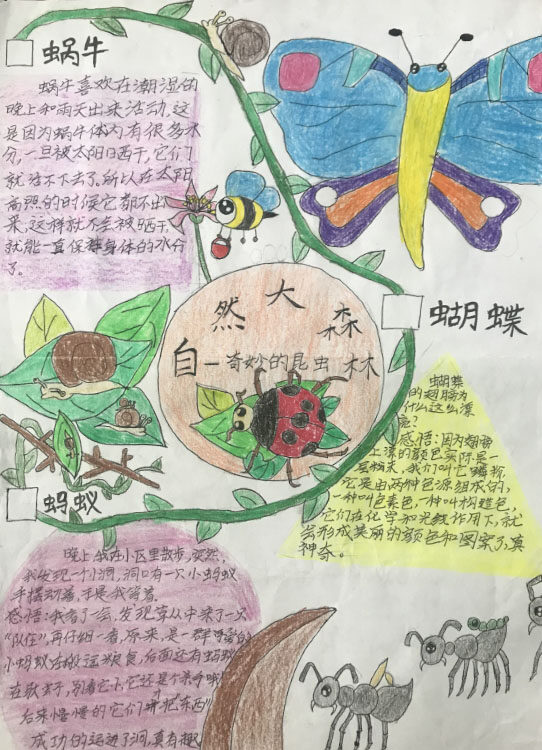 蜗牛
蜗牛喜欢在潮湿的
晚上和雨天出来活动,这
是因为蜗牛体内有很多水
分,一旦被太阳晒干,它们
就活不下去了。所以在太阳
高照的时候它都不出
来,这样就不会被晒干,
就能一直保持身体的水分
了。
自然大森林
—奇妙的昆虫
蝴蝶
蝴蝶
的翅膀为
什么这么漂
亮?
感悟:因为翅膀
上漂的颜色实际是一
层鳞夹,我们叫它鳞粉
它是由两种色源组成的,
一种叫色素色,一种叫构造色,
它们在化学和光教作用下,就
当形成美丽的颜色和图案了,真
神奇。
蚂蚁
晚上,我在小区里散步,突然,
我发现一个洞,洞口有一只小蚂蚁
手摆动着,于是我
感悟:我看了一会,发现草从中来了一只
再仔细一看,原来,是一群可爱的
小蚂蚁在搬运粮食,后面还有蚂蚁
在 别看它小,它还是个
后来慢慢的它们 把东西
成功的运进了洞,真有趣